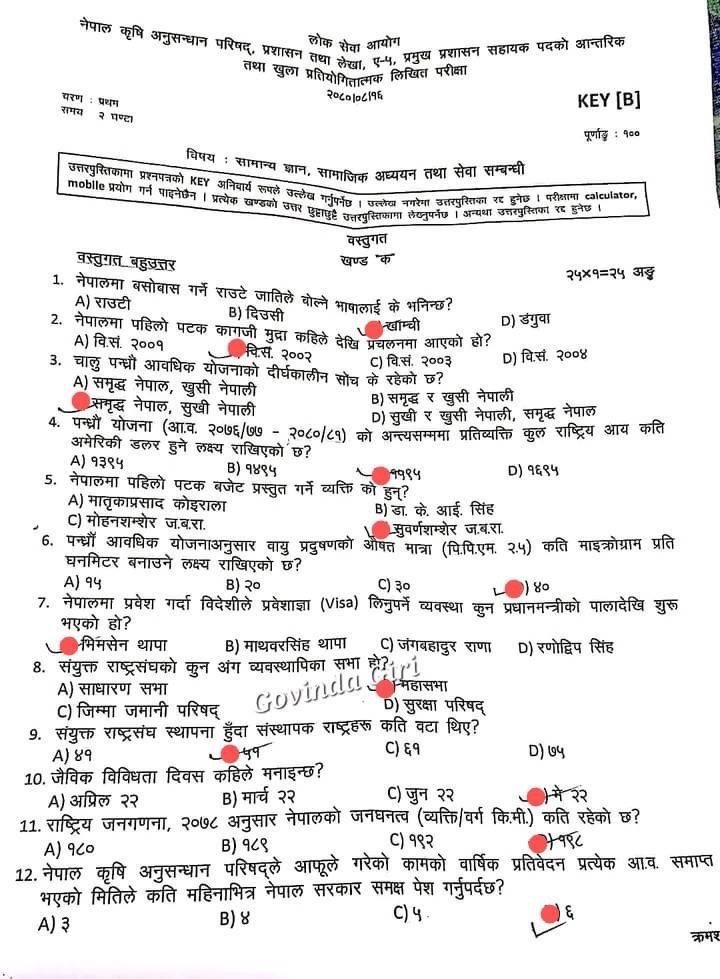 लोक सेवा आयोग
नेपाल कृषि अनुसन्धान परिषद्, प्रशासन तथा लेखा, ए-५, प्रमुख प्रशासन सहायक पदको आन्तरिक
तथा खुला प्रतियोगितात्मक लिखित परीक्षा
२०८०।०८।१६
चरण : प्रथम
KEY [B]
समय २ घण्टा
पूर्णाङ्क : १००
विषय : सामान्य ज्ञान, सामाजिक अध्ययन तथा सेवा सम्बन्धी
उत्तरपुस्तिकामा प्रश्नपत्रको KEY अनिवार्य रूपले उल्लेख गर्नुपर्नेछ । उल्लेख नगरेमा उत्तरपुस्तिका रद्द हुनेछ । परीक्षामा calculator,
mobile प्रयोग गर्न पाइनेछैन । प्रत्येक खण्डको उत्तर छुट्टाछुट्टै उत्तरपुस्तिकामा लेख्नुपर्नेछ । अन्यथा उत्तरपुस्तिका रद्द हुनेछ ।
वस्तुगत
वस्तुगत बहुउत्तर
खण्ड "क"
२५×१=२५ अङ्क
1. नेपालमा बसोबास गर्ने राउटे जातिले बोल्ने भाषालाई के भनिन्छ?
A) राउटी B) दिउसी खाम्ची D) डंगुवा
2. नेपालमा पहिलो पटक कागजी मुद्रा कहिले देखि प्रचलनमा आएको हो?
A) वि.सं. २००१ वि.सं. २००२ C) वि.सं. २००३ D) वि.सं. २००४
3. चालु पन्ध्रौं आवधिक योजनाको दीर्घकालीन सोच के रहेको छ?
A) समृद्ध नेपाल, खुसी नेपाली B) समृद्ध र खुसी नेपाली
समृद्ध नेपाल, सुखी नेपाली D) सुखी र खुसी नेपाली, समृद्ध नेपाल
4. पन्ध्रौं योजना (आ.व. २०७६/७७ - २०८०/८१) को अन्त्यसम्ममा प्रतिव्यक्ति कुल राष्ट्रिय आय कति
अमेरिकी डलर हुने लक्ष्य राखिएको छ?
A) १३९५ B) १४९५ १५९५ D) १६९५
5. नेपालमा पहिलो पटक बजेट प्रस्तुत गर्ने व्यक्ति को हुन्?
A) मातृकाप्रसाद कोइराला B) डा. के. आई. सिंह
C) मोहनशम्शेर ज.ब.रा. सुवर्णशम्शेर ज.ब.रा.
6. पन्ध्रौं आवधिक योजनाअनुसार वायु प्रदुषणको औषत मात्रा (पि.पि.एम. २.५) कति माइक्रोग्राम प्रति
घनमिटर बनाउने लक्ष्य राखिएको छ?
A) १५ B) २० C) ३० ) ४०
7. नेपालमा प्रवेश गर्दा विदेशीले प्रवेशाज्ञा (Visa) लिनुपर्ने व्यवस्था कुन प्रधानमन्त्रीको पालादेखि शुरू
भएको हो?
भिमसेन थापा B) माथवरसिंह थापा C) जंगबहादुर राणा D) रणोद्विप सिंह
8. संयुक्त राष्ट्रसंघको कुन अंग व्यवस्थापिका सभा हो?
A) साधारण सभा महासभा
C) जिम्मा जमानी परिषद् D) सुरक्षा परिषद्
Govinda Giri
9. संयुक्त राष्ट्रसंघ स्थापना हुँदा संस्थापक राष्ट्रहरू कति वटा थिए?
A) ४१ ५१ C) ६१ D) ७५
10. जैविक विविधता दिवस कहिले मनाइन्छ?
A) अप्रिल २२ B) मार्च २२ C) जुन २२ ) मे २२
11. राष्ट्रिय जनगणना, २०७८ अनुसार नेपालको जनघनत्व (व्यक्ति/वर्ग कि.मी.) कति रहेको छ?
A) १८० B) १८९ C) १९२ ) १९८
12. नेपाल कृषि अनुसन्धान परिषद्ले आफूले गरेको कामको वार्षिक प्रतिवेदन प्रत्येक आ.व. समाप्त
भएको मितिले कति महिनाभित्र नेपाल सरकार समक्ष पेश गर्नुपर्दछ?
A) ३ B) ४ C) ५ ) ६
क्रमश